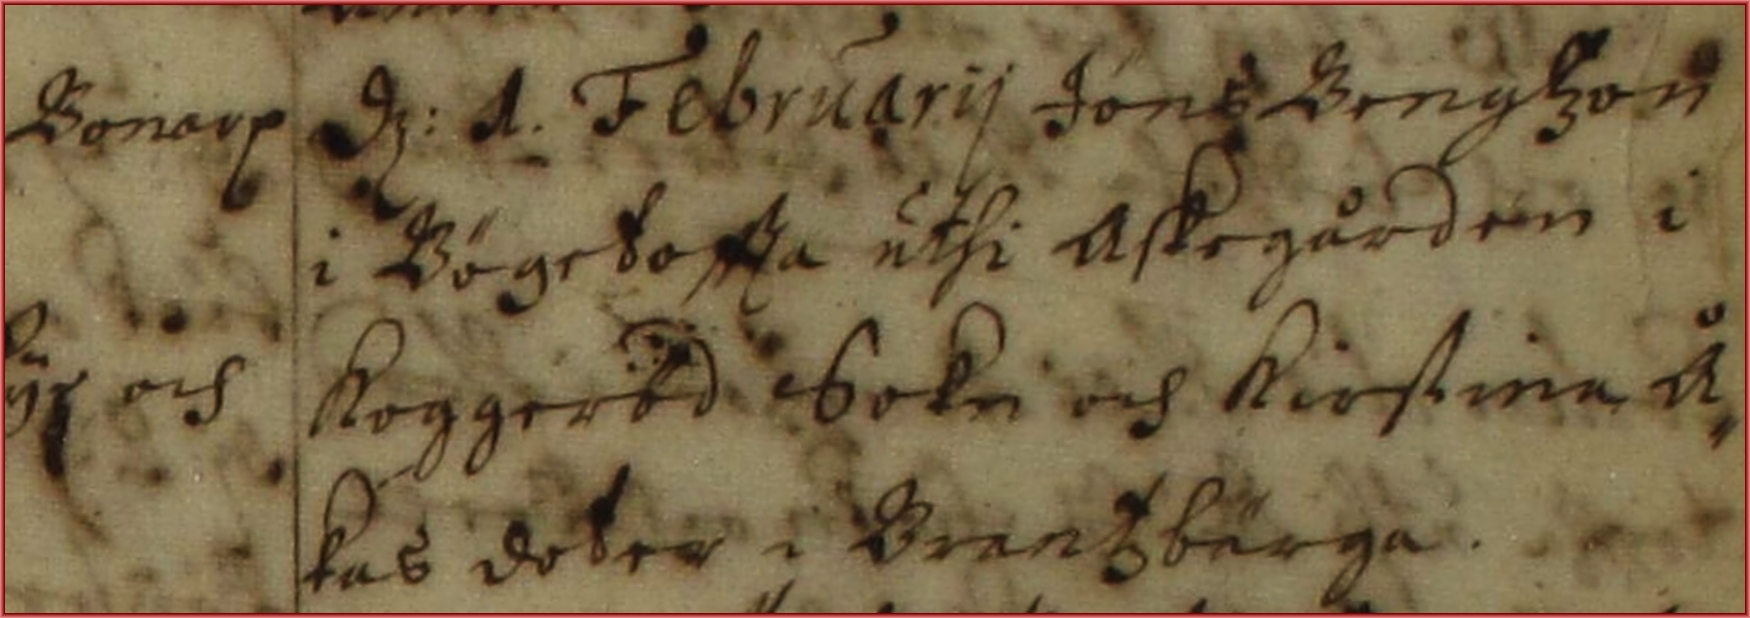 Bonarp
Dȝ: 1. Februarij Jöns Bengtzon
i Bögetofta uthi Askegården i
Koggeröd Sokn och Kirstina Å,
och
kas doter i Brantzbärga.